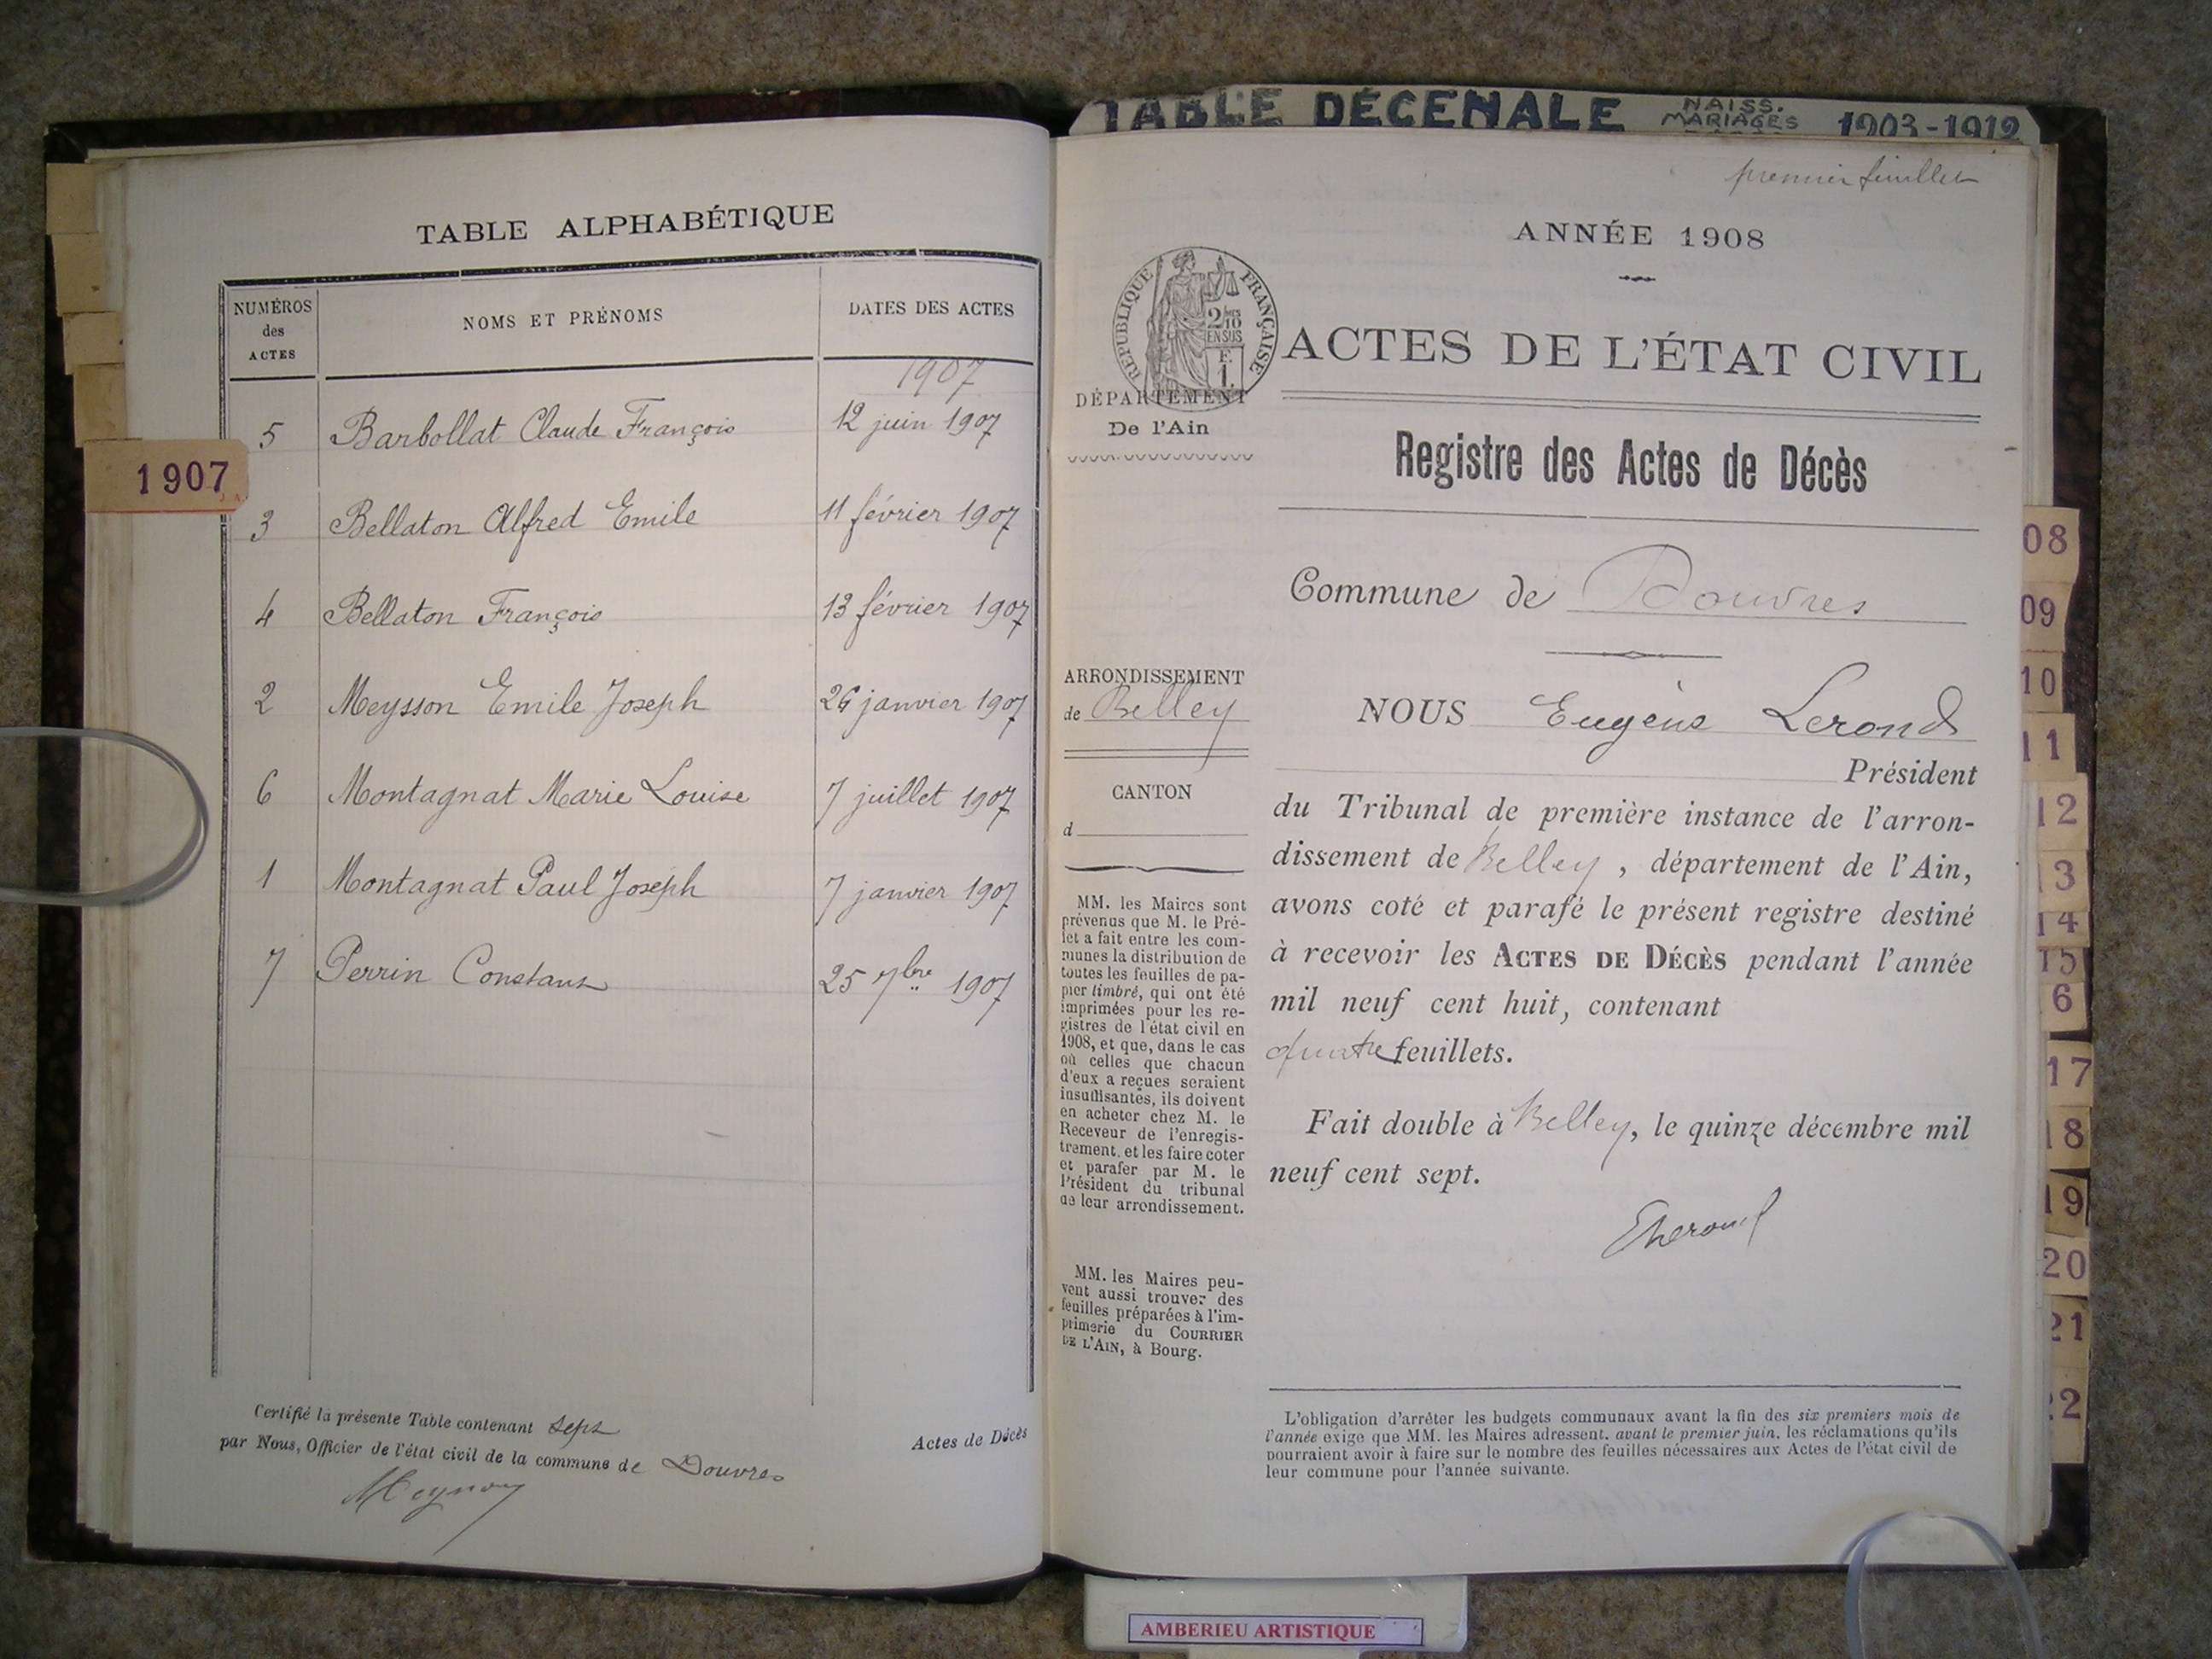 TABLE DÉCENALE NAISS. MARIAGES 1903-1912
TABLE ALPHABÉTIQUE
NUMÉROS des ACTES
NOMS ET PRÉNOMS
DATES DES ACTES
1907
5 Barbollat Claude François 12 juin 1907
1907
3 Bellaton Alfred Emile 11 février 1907
4 Bellaton François 13 février 1907
2 Meysson Emile Joseph 26 janvier 1907
6 Montagnat Marie Louise 7 juillet 1907
1 Montagnat Paul Joseph 7 janvier 1907
7 Perrin Constant 25 7bre 1907
Certifié la présente Table contenant sept
par Nous, Officier de l'état civil de la commune de Douvres
Actes de Décès
premier feuillet
ANNÉE 1908
RÉPUBLIQUE FRANÇAISE
2/10
EN SUS
F.
1.
ACTES DE L'ÉTAT CIVIL
DÉPARTEMENT
De l'Ain
Registre des Actes de Décès
Commune de Douvres
ARRONDISSEMENT
de Belley
CANTON
d
MM. les Maires sont
prévenus que M. le Pré-
fet a fait entre les com-
munes la distribution de
toutes les feuilles de pa-
pier timbré, qui ont été
imprimées pour les re-
gistres de l'état civil en
1908, et que, dans le cas
où celles que chacun
d'eux a reçues seraient
insuffisantes, ils doivent
en acheter chez M. le
Receveur de l'enregis-
trement, et les faire coter
et parafer par M. le
Président du tribunal
de leur arrondissement.
MM. les Maires peu-
vent aussi trouver des
feuilles préparées à l'im-
primerie du COURRIER
DE L'AIN, à Bourg.
NOUS Eugène Lerond
Président
du Tribunal de première instance de l'arron-
dissement de Belley, département de l'Ain,
avons coté et parafé le présent registre destiné
à recevoir les ACTES DE DÉCÈS pendant l'année
mil neuf cent huit, contenant
quatre feuillets.
Fait double à Belley, le quinze décembre mil
neuf cent sept.
ELerond
L'obligation d'arrêter les budgets communaux avant la fin des six premiers mois de
l'année exige que MM. les Maires adressent, avant le premier juin, les réclamations qu'ils
pourraient avoir à faire sur le nombre des feuilles nécessaires aux Actes de l'état civil de
leur commune pour l'année suivante.
08
09
10
11
12
13
14
15
6
17
18
19
20
21
22
AMBERIEU ARTISTIQUE